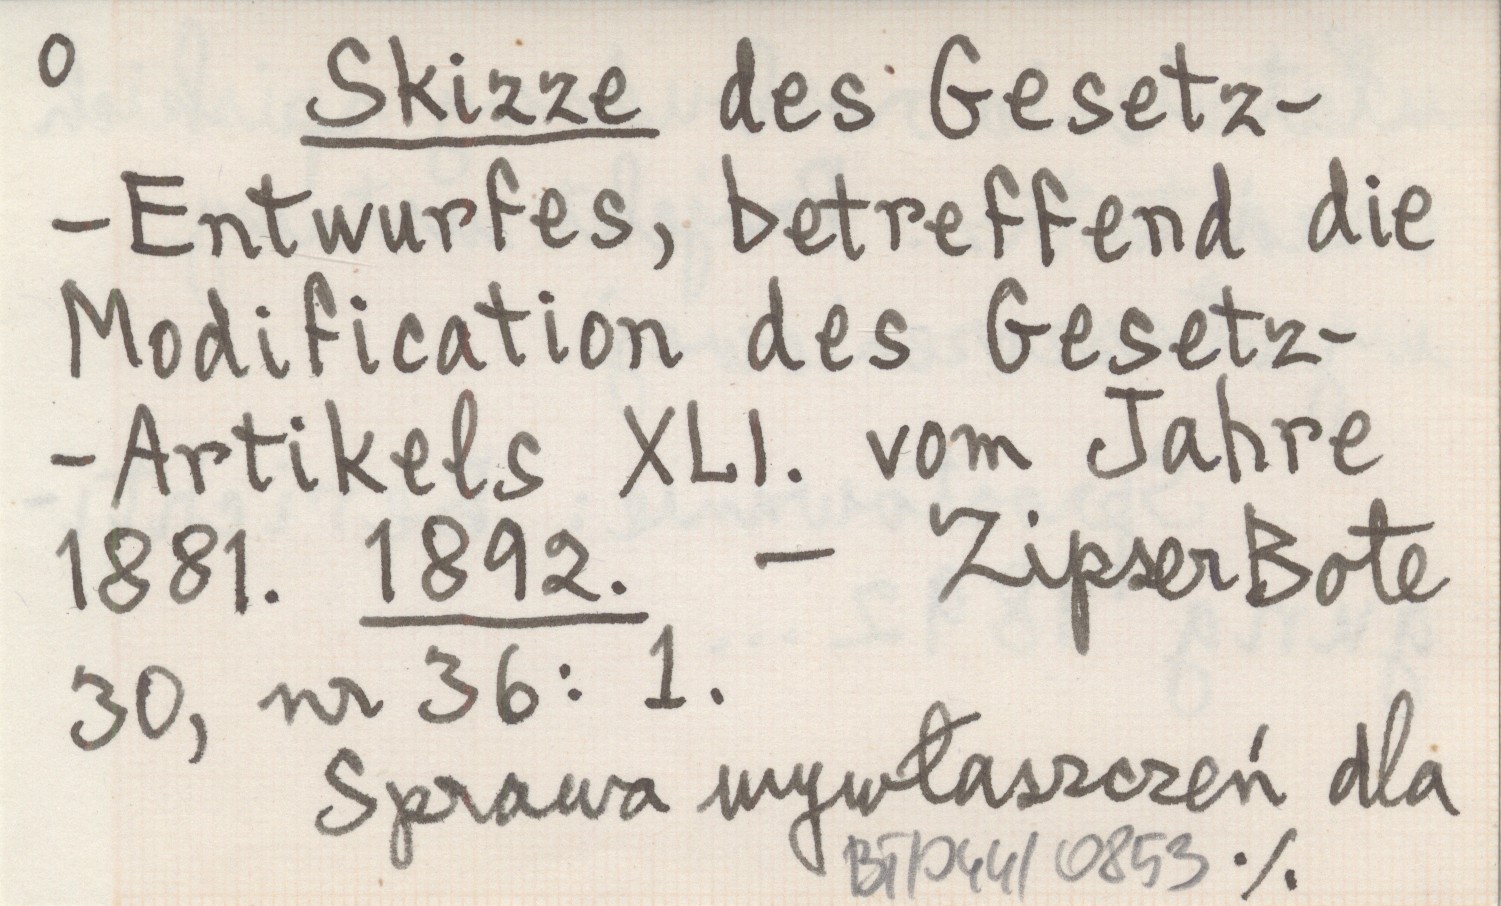 0 Skizze des Gesetz-
-Entwurfes, betreffend die
Modification des Gesetz-
-Artikels XLI. vom Jahre
1881. 1892. — Zipser Bote
30, nr 36: 1.
Sprawa wywłaszczeń dla
0853 ./.